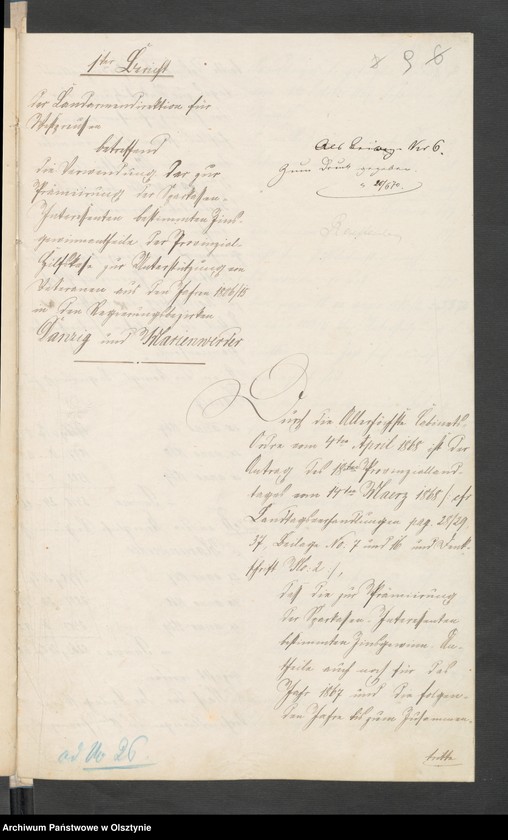 1ter Bericht
der Landarmendirektion für
Westpreussen
betreffend
die Verwendung der zur
Prämiirung der Sparkassen-
Interessenten bestimmten Zins-
gewinnantheile der Provinzial-
Hilfskasse zur Unterstützung von
Veteranen aus den Jahren 1806/15
in den Regierungsbezirken
Danzig und Marienwerder
9 8
Als Beilage No 6.
Zum Druck gegeben
Durch die Allerhöchste Cabinets-
Ordre vom 4ten April 1868 ist der
Antrag des 18ten Provinzialland-
tages vom 14ten Maerz 1868 / cfr
Landtagsverhandlungen pag. 28/29.
37, Beilage No. 7 und 16 und Denk-
schrift No. 2 /,
daß die zur Prämiirung
der Sparkassen-Interessenten
bestimmten Zinsgewinn-An-
theile auch noch für das
Jahr 1867 und die folgen-
den Jahre bis zum Zusammen-
tritte
ad No 26.
Archiwum Państwowe w Olsztynie